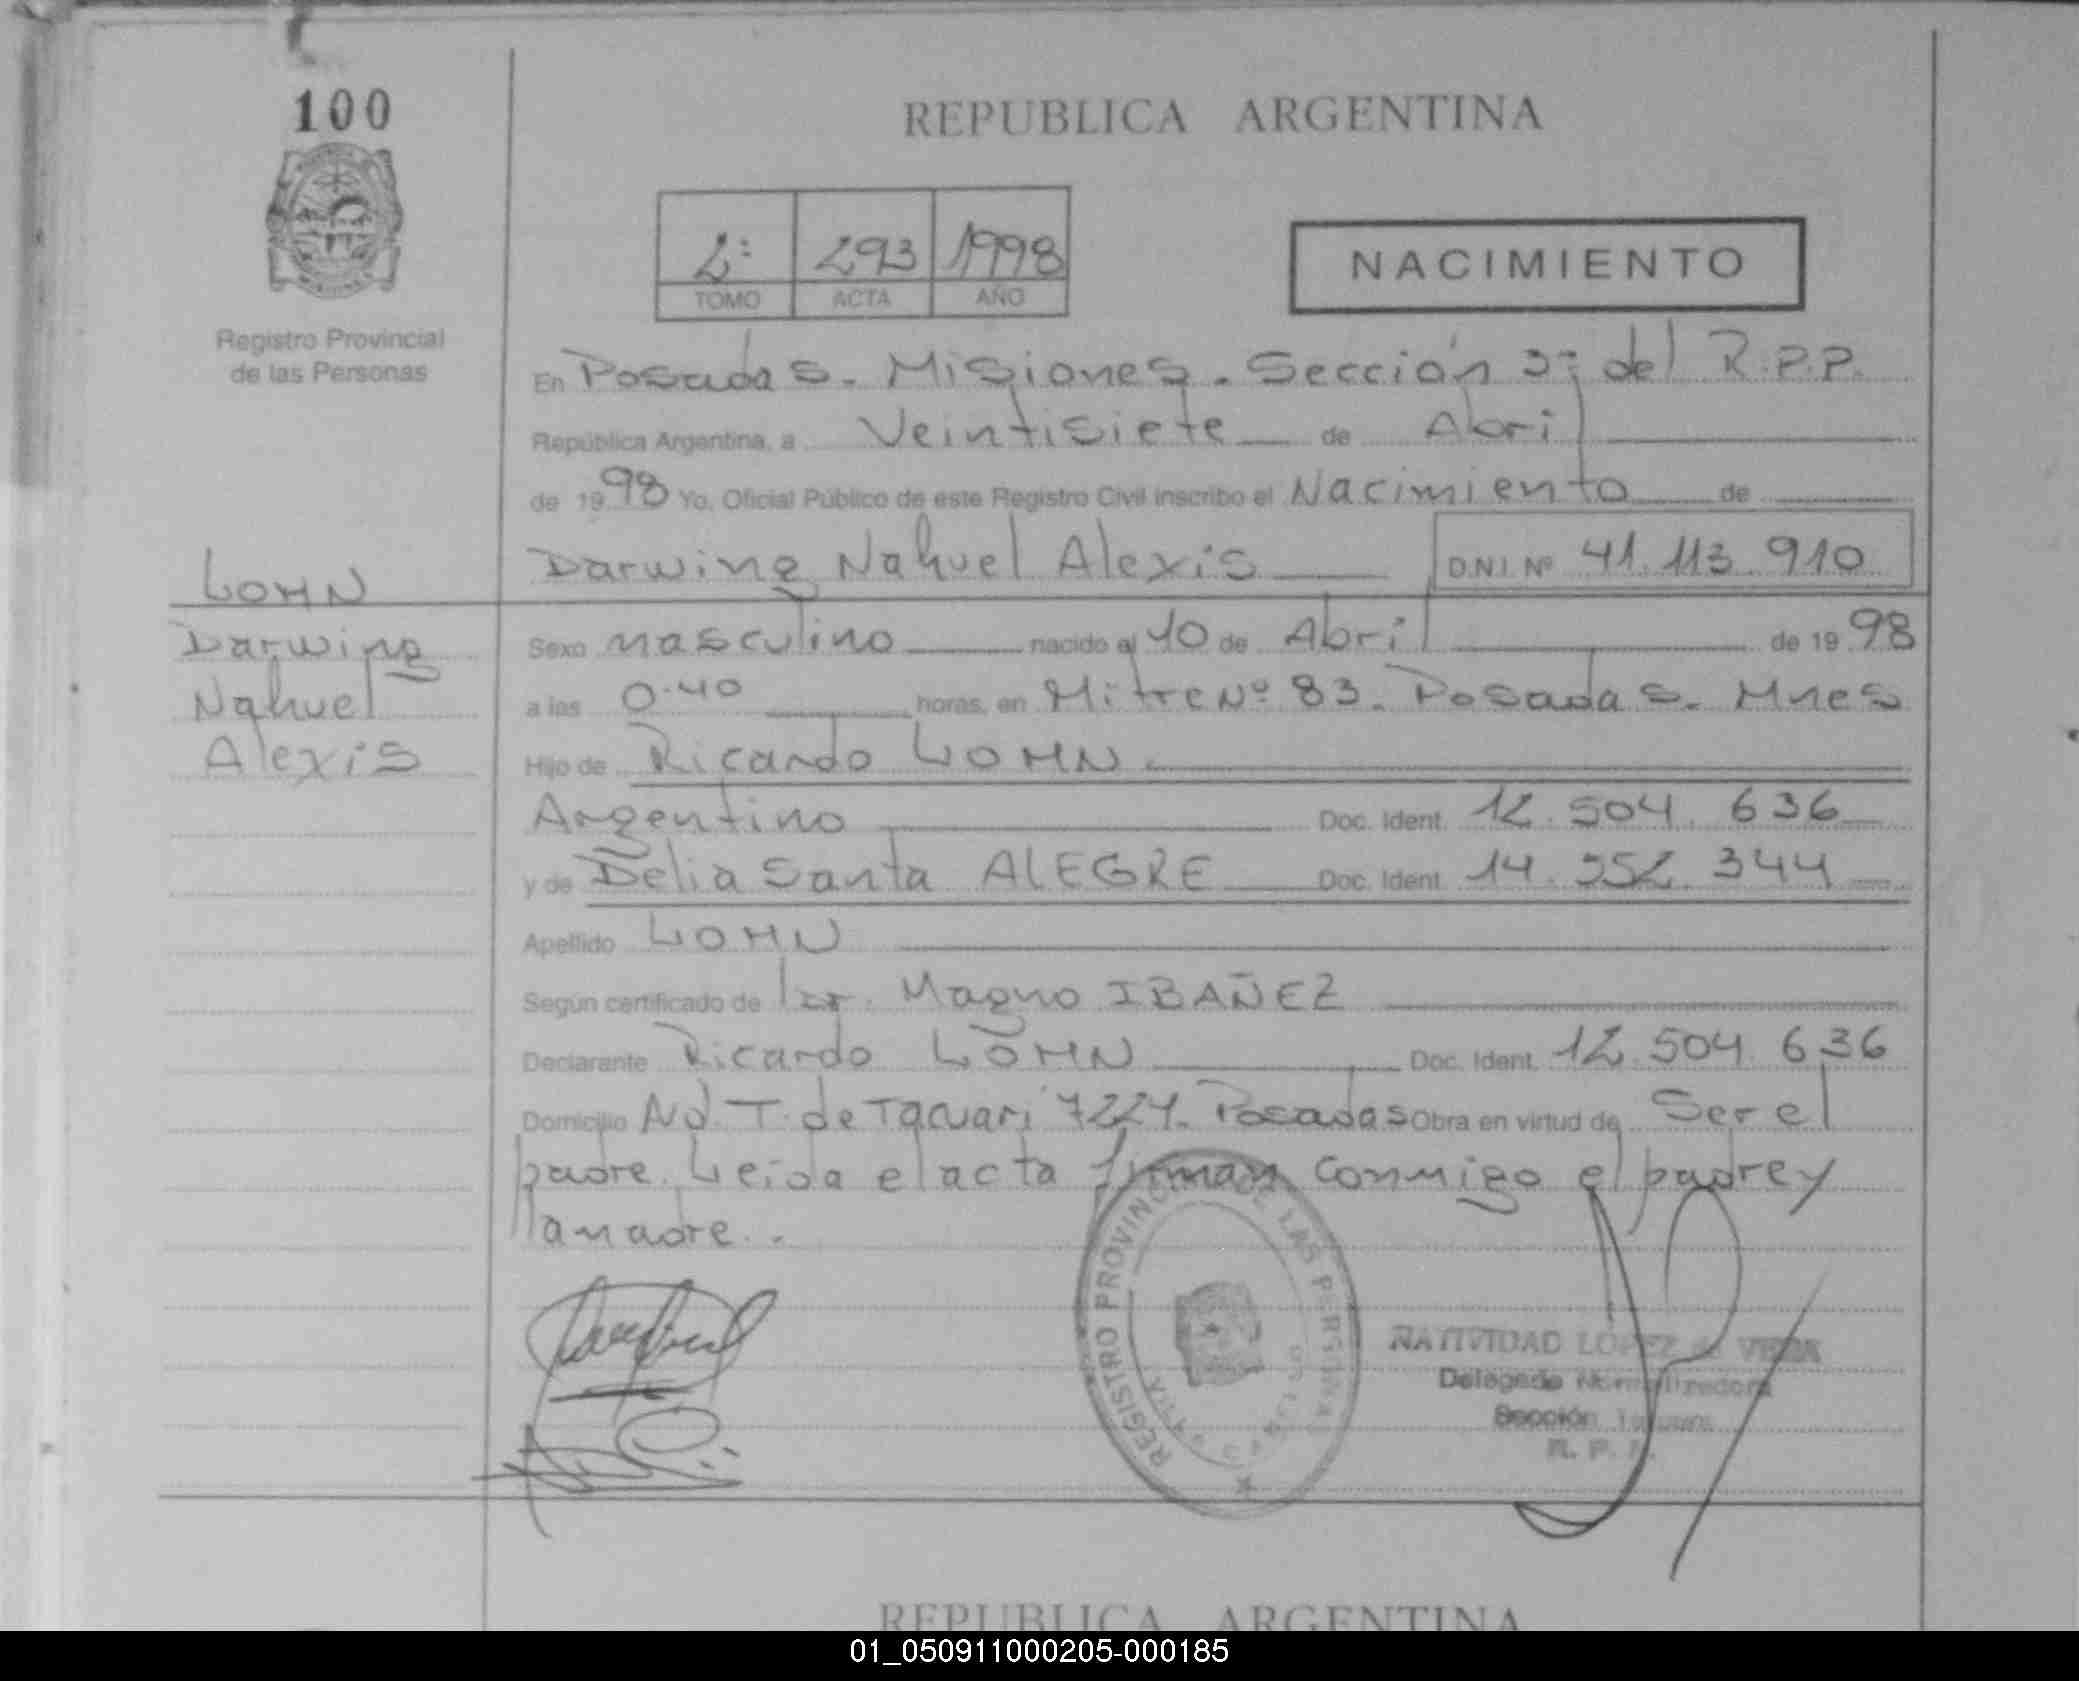 100
REPUBLICA ARGENTINA
2º 293 1998
TOMO ACTA AÑO
NACIMIENTO
Registro Provincial
de las Personas
En Posadas. Misiones. Sección 3ª del R.P.P.
República Argentina, a Veintisiete de Abril
de 1998 Yo, Oficial Público de este Registro Civil inscribo el Nacimiento de
Darwing Nahuel Alexis D.N.I. Nº 41.113.910
LOHN
Darwing
Nahuel
Alexis
Sexo masculino nacido el 10 de Abril de 1998
a las 0.40 horas, en Mitre Nº 83. Posadas. Mnes
Hijo de Ricardo LOHN.
Argentino Doc. Ident. 12.504.636
y de Delia Santa ALEGRE Doc. Ident. 14.952.344
Apellido LOHN
Según certificado de Dr. Magno IBAÑEZ
Declarante Ricardo LOHN Doc. Ident. 12.504.636
Domicilio Av. T. de Tacuari 7221. Posadas Obra en virtud de Ser el
padre. Leida el acta firman conmigo el padre y
la madre.
REGISTRO PROVINCIAL DE LAS PERSONAS
NATIVIDAD LOPEZ de VERA
Delegada Normalizadora
Sección
R. P. P.
REPUBLICA ARGENTINA
01_050911000205-000185